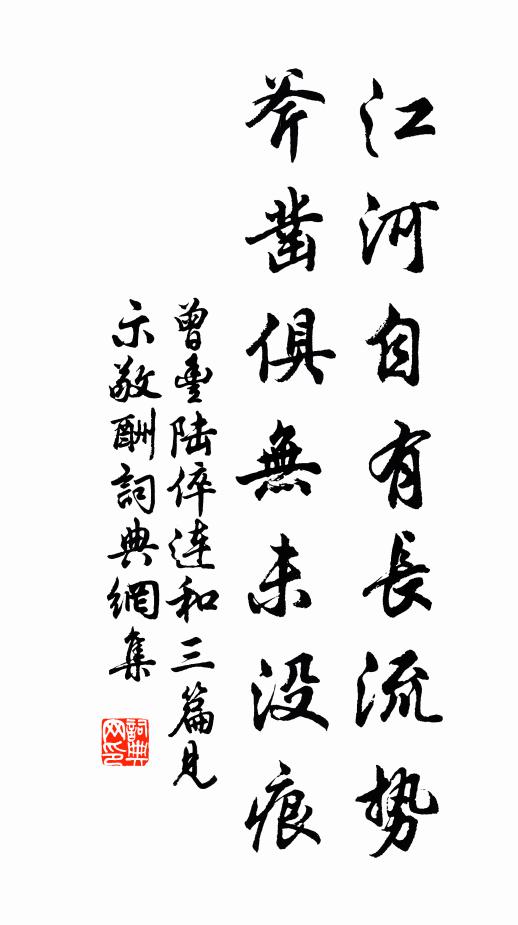 江河自有長流勢
斧鑿俱無未没痕
曾豊陸倅連和三篇見
示敬酬詞典網集
詞典
网印